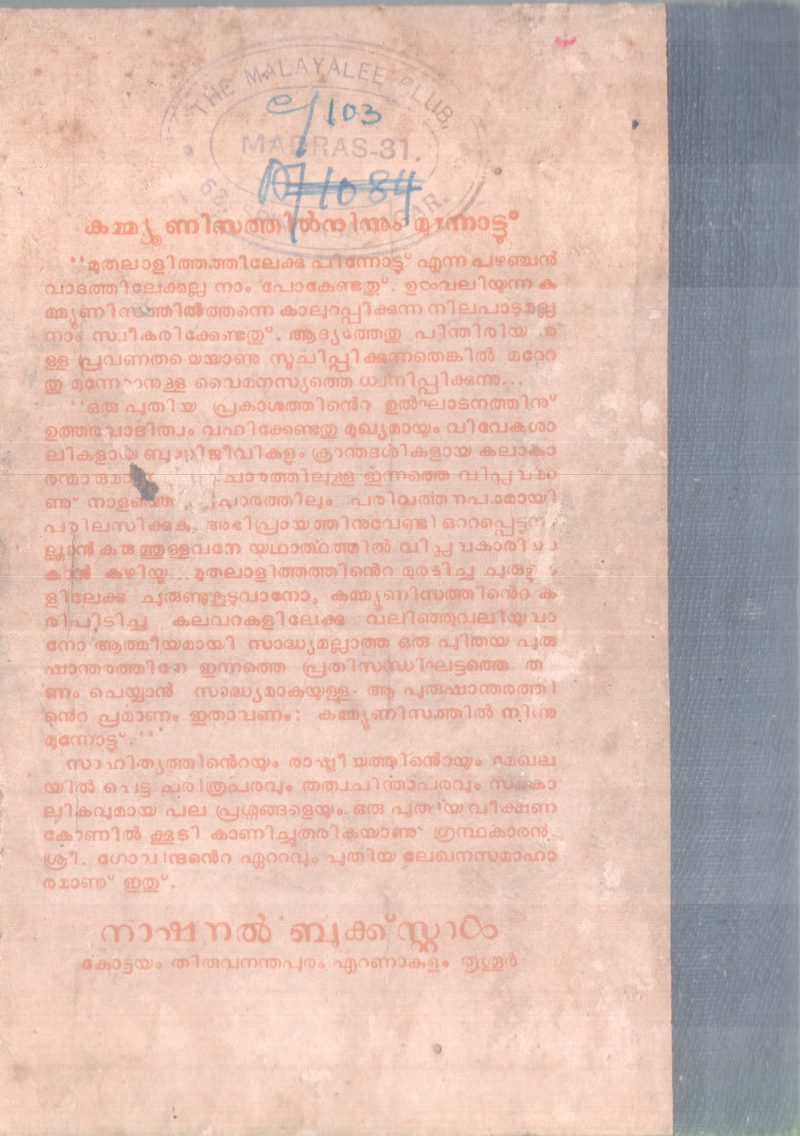 THE MALAYALEE CLUB,
e/103
MADRAS-31.
1084
കമ്മ്യൂണിസത്തിൽനിന്നും മുന്നോട്ടു്
‘‘മുതലാളിത്തത്തിലേക്കു പിന്നോട്ടു് എന്ന പഴഞ്ചൻ
വാദത്തിലേക്കല്ല നാം പോകേണ്ടതു്. ഉടംവലിയുന്ന ക
മ്മ്യൂണിസത്തിൽത്തന്നെ കാലുറപ്പിക്കുന്ന നിലപാടുമല്ല
നാം സ്വീകരിക്കേണ്ടതു്. ആദ്യത്തേതു പിന്തിരിയ
ള്ള പ്രവണതയെയാണു സൂചിപ്പിക്കുന്നതെങ്കിൽ മറ്റേ
തു മുന്നേറാനുള്ള വൈമനസ്യത്തെ ധ്വനിപ്പിക്കുന്നു...
‘‘ഒരു പുതിയ പ്രകാശത്തിൻെറ ഉൽഘാടനത്തിനു്
ഉത്തരവാദിത്വം വഹിക്കേണ്ടതു മുഖ്യമായും വിവേകശാ
ലികളായ ബുദ്ധിജീവികളും ക്രാന്തദർശികളായ കലാകാ
രന്മാരുമാ ചാരത്തിലുള്ള ഇന്നത്തെ വിപ്ലവമാ
ണു് നാളത്തെ പരിവർത്തനപരമായി
പരിലസിക്കുക. അഭിപ്രായത്തിനുവേണ്ടി ഒററപ്പെട്ടുനി
ല്ക്കാൻ കരുത്തുള്ളവനേ യഥാർത്ഥത്തിൽ വിപ്ലവകാരിയാ
കാൻ കഴിയൂ... മുതലാളിത്തത്തിൻെറ മുരടിച്ച ചുരുളു
ളിലേക്കു ചുരുണ്ടുകൂടുവാനോ, കമ്മ്യൂണിസത്തിൻെറ ക
രിപിടിച്ച കലവറകളിലേക്കു വലിഞ്ഞുവലിയുവാ
നോ ആത്മീയമായി സാദ്ധ്യമല്ലാത്ത ഒരു പുതിയ പുരു
ഷാന്തരത്തിനേ ഇന്നത്തെ പ്രതിസന്ധിഘട്ടത്തെ ത
ണം ചെയ്യാൻ സാദ്ധ്യമാകയുള്ളു. ആ പുരുഷാന്തരത്തി
ൻെറ പ്രമാണം ഇതാവണം: കമ്മ്യൂണിസത്തിൽ നിന്നു
മുന്നോട്ടു്.’’
സാഹിത്യത്തിൻെറയും രാഷ്ട്രീയത്തിൻെറയും മേഖല
യിൽ പെട്ട ചരിത്രപരവും തത്വചിന്താപരവും സമകാ
ലികവുമായ പല പ്രശ്നങ്ങളെയും ഒരു പുതിയ വീക്ഷണ
കോണിൽ ക്കൂടി കാണിച്ചുതരികയാണു് ഗ്രന്ഥകാരൻ.
ശ്രീ. ഗോവിന്ദൻെറ ഏററവും പുതിയ ലേഖനസമാഹാ
രമാണു് ഇതു്.
നാഷനൽ ബുക്ക് സ്റ്റാൾ
കോട്ടയം തിരുവനന്തപുരം എറണാകുളം തൃശൂർ